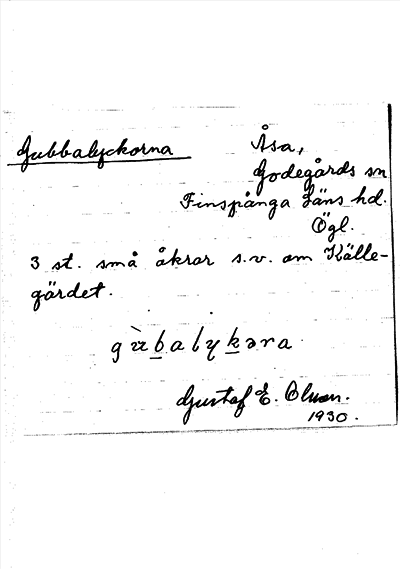 Gubbalyckorna
Åsa,
Godegårds sn
Finspånga Läns hd.
Ögl.
3 st. små åkrar s.v. om Källe-
gärdet.
gùbalykəra
Gustaf E. Olson.
1930.